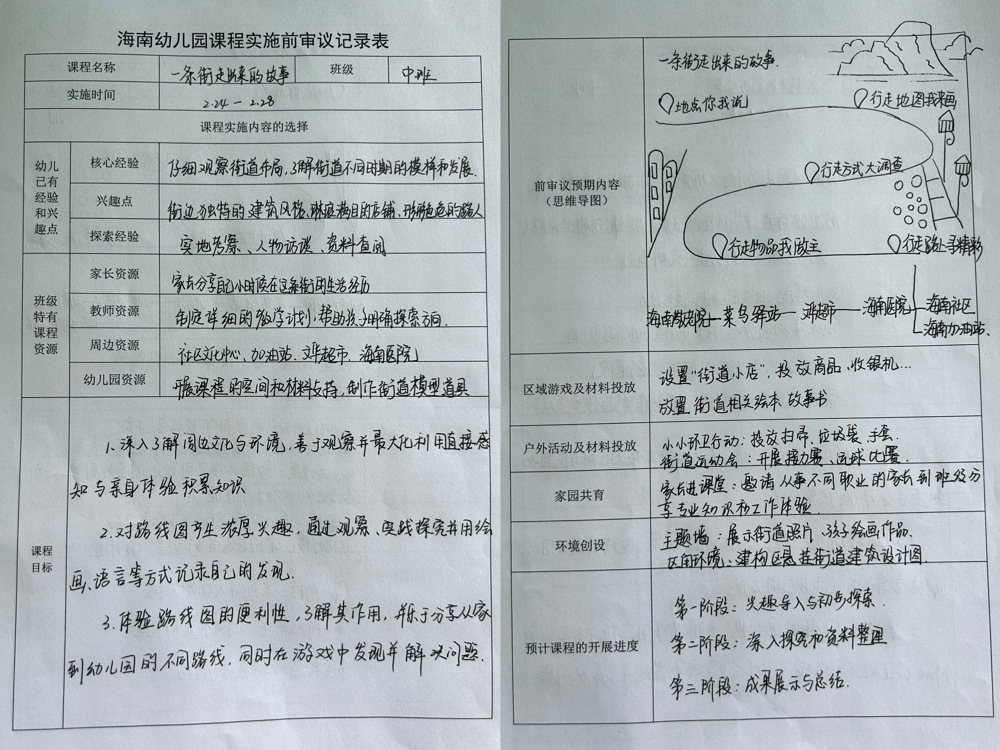 海南幼儿园课程实施前审议记录表
课程名称 一条街走出来的故事 班级 中班
实施时间 2.24 — 2.28
课程实施内容的选择
幼儿已有经验和兴趣点
核心经验 仔细观察街道布局,了解街道不同时期的模样和发展.
兴趣点 街边独特的建筑风格、琳琅满目的店铺、形形色色的路人
探索经验 实地考察、人物访谈、资料查阅
班级特有课程资源
家长资源 家长分享自己小时候在这条街的生活经历
教师资源 制定详细的教学计划,帮助孩子明确探索方向.
周边资源 社区文化中心、加油站、邓超市、海南医院
幼儿园资源 开展课程的空间和材料支持,制作街道模型道具
课程目标
1.深入了解周边文化与环境,善于观察并最大化利用直接感
知与亲身体验积累知识
2.对路线图产生浓厚兴趣,通过观察、实践探究并用绘
画、语言等方式记录自己的发现.
3.体验路线图的便利性,了解其作用,并乐于分享从家
到幼儿园的不同路线,同时在游戏中发现并解决问题.
前审议预期内容
(思维导图)
一条街走出来的故事.
地点你我说
行走地图我来画
行走方式大调查
行走物品我做主
行走路上寻精彩
菜鸟驿站 — 邓超市 — 海南医院
海南社区
海南加油站.
区域游戏及材料投放
设置“街道小店”,投放商品、收银机...
放置街道相关绘本、故事书
户外活动及材料投放
小小环卫行动:投放扫帚、垃圾袋、手套.
街道运动会:开展接力赛、运球比赛.
家园共育
家长进课堂:邀请从事不同职业的家长到班级分
享专业知识和工作体验.
环境创设
主题墙:展示街道照片、孩子绘画作品.
区角环境:建构区悬挂街道建筑设计图.
预计课程的开展进度
第一阶段:兴趣导入与初步探索.
第二阶段:深入探究和资料整理
第三阶段:成果展示与总结.